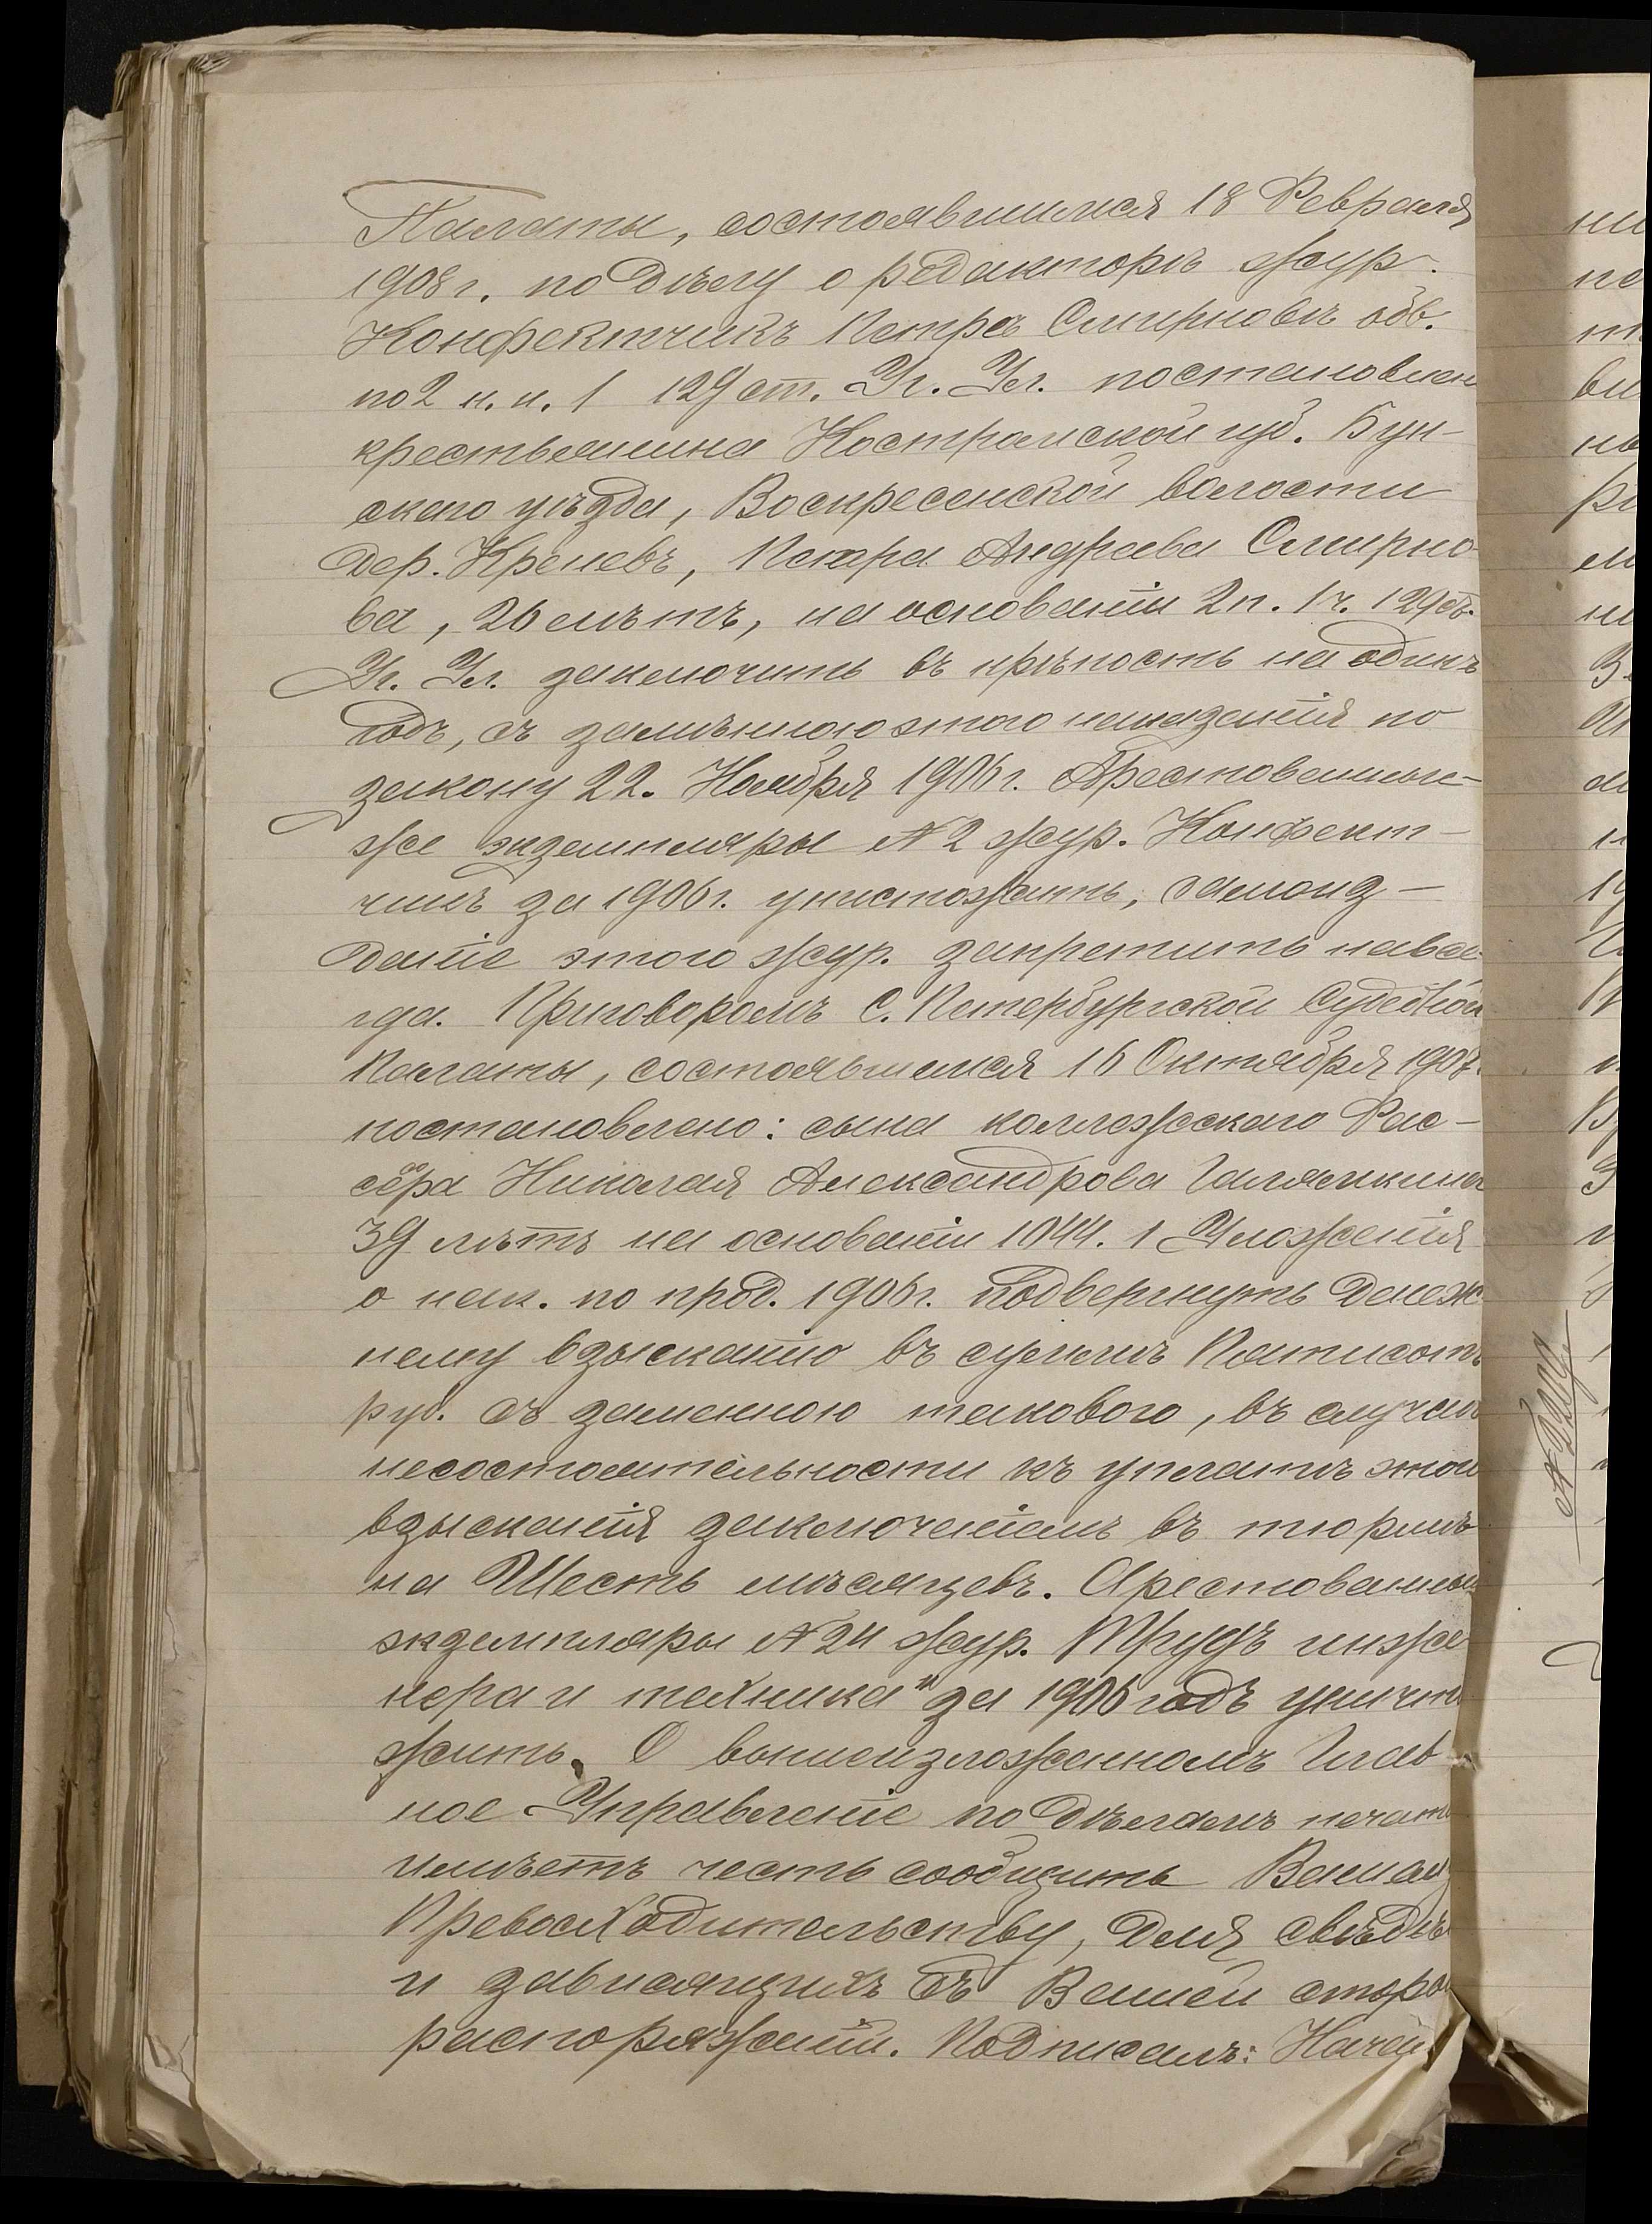 Палаты, состоявшимся 18 Февраля
1908 г. по дѣлу о редакторѣ жур.
Конфектчикъ Петрѣ Смирновѣ обв.
по 2 п. ч. 1 129 ст. Уг. Ул. постановлен
крестьянина Костромской губ. Буи-
скаго уѣзда, Воскресенской волости
дер. Креневъ, Петра Андреева Смирно-
ва, 26 лѣтъ, на основаніи 2 п. 1 ч. 129 ст.
Уг. Ул. заключить въ крѣпость на одинъ
годъ, съ замѣною этого наказанія по
закону 22. Ноября 1906 г. Арестованные-
же экземпляры № 2 жур. Конфект-
чикъ за 1906 г. уничтожить, само из-
даніе этого жур. запретить навсе-
гда. Приговоромъ С. Петербургской Судебной
Палаты, состоявшемся 16 Октября 1907.
постановлено: сына коллежскаго Рас-
сора Николая Александрова
39 лѣтъ на основаніи 1044. 1 Уложенія
о нак. по прод. 1906 г. подвергнуть денеж
ному взысканію въ суммѣ Пятисотъ
руб. съ заменною таковаго, въ случаѣ
несостоятельности къ уплатѣ этого
взысканія заключеніемъ въ тюрьмѣ
на Шесть мѣсяцевъ. Арестованные
экземпляры № 24 жур. Трудъ инже
нера и техника" за 1906 годъ уничто
жить. О вышеизложенномъ Глав
ное Управленіе по дѣламъ печати
имѣетъ честь сообщить Вашему
Превосходительству, для свѣдѣ
и зависящихъ съ Вашей сторо
распоряженій. Подписалъ: Начал